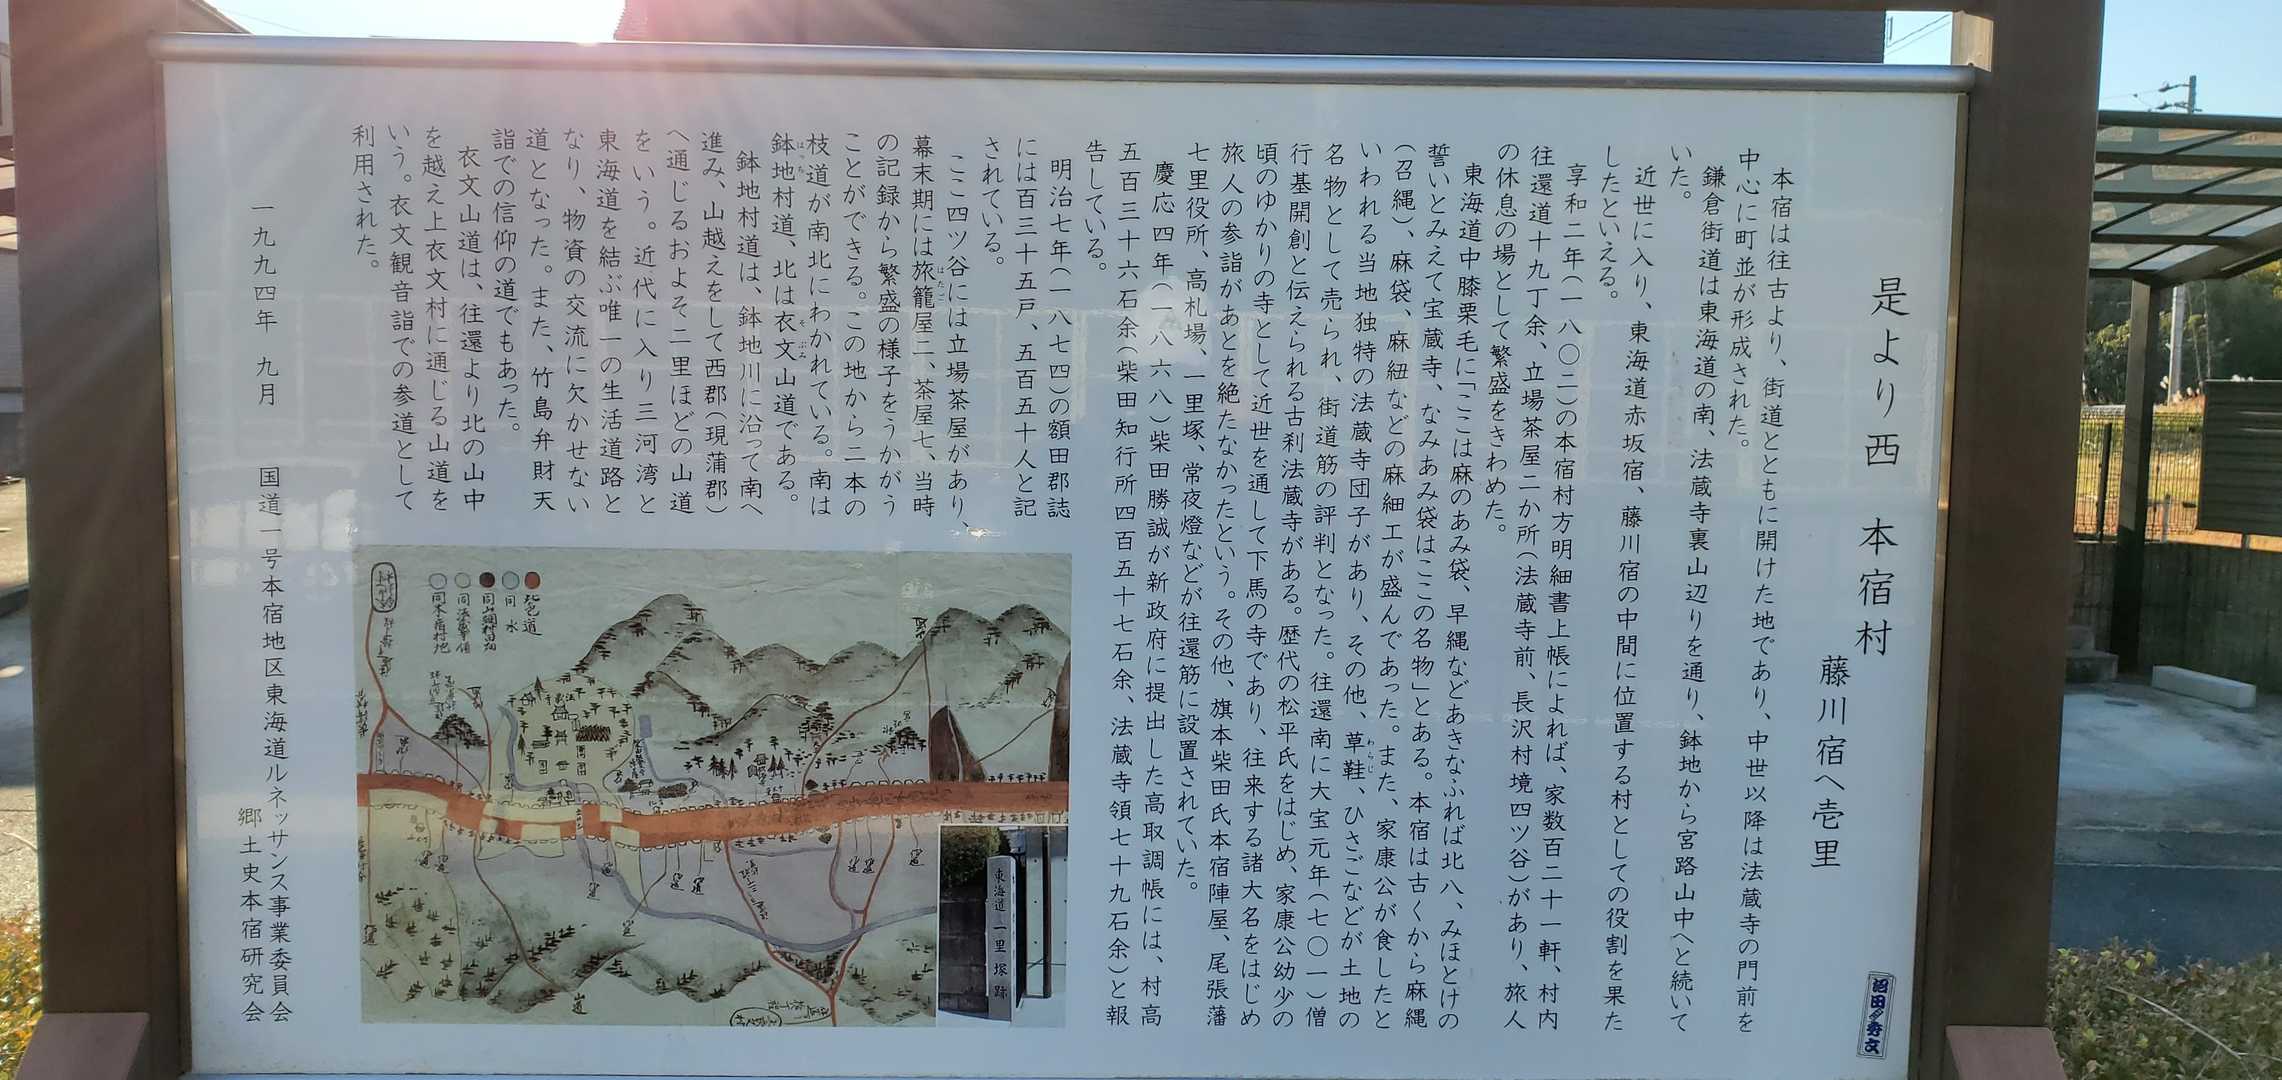 是より西 本宿村
藤川宿へ壱里
本宿は往古より、街道とともに開けた地であり、中世以降は法蔵寺の門前を
中心に町並が形成された。
鎌倉街道は東海道の南、法蔵寺裏山辺りを通り、鉢地から宮路山中へと続いて
いた。
近世に入り、東海道赤坂宿、藤川宿の中間に位置する村としての役割を果た
したといえる。
享和二年(一八〇二)の本宿村方明細書上帳によれば、家数百二十一軒、村内
往還道十九丁余、立場茶屋二か所(法蔵寺前、長沢村境四ツ谷)があり、旅人
の休息の場として繁盛をきわめた。
東海道中膝栗毛に「ここは麻のあみ袋、早縄などあきなふれば北八、みほとけの
誓いとみえて宝蔵寺、なみあみ袋はここの名物」とある。本宿は古くから麻縄
(召縄)、麻袋、麻紐などの麻細工が盛んであった。また、家康公が食したと
いわれる当地独特の法蔵寺団子があり、その他、草鞋、ひさごなどが土地の
わらじ
名物として売られ、街道筋の評判となった。往還南に大宝元年(七〇一)僧
行基開創と伝えられる古刹法蔵寺がある。歴代の松平氏をはじめ、家康公幼少の
頃のゆかりの寺として近世を通して下馬の寺であり、往来する諸大名をはじめ
旅人の参詣があとを絶たなかったという。その他、旗本柴田氏本宿陣屋、尾張藩
七里役所、高札場、一里塚、常夜燈などが往還筋に設置されていた。
慶応四年(一八六八)柴田勝誠が新政府に提出した高取調帳には、村高
五百三十六石余(柴田知行所四百五十七石余、法蔵寺領七十九石余)と報
告している。
明治七年(一八七四)の額田郡誌
には百三十五戸、五百五十人と記
されている。
ここ四ツ谷には立場茶屋があり、
幕末期には旅籠屋二、茶屋七、当時
はたご
の記録から繁盛の様子をうかがう
ことができる。この地から二本の
枝道が南北にわかれている。南は
鉢地村道、北は衣文山道である。
はっち
そぶみ
鉢地村道は、鉢地川に沿って南へ
進み、山越えをして西郡(現蒲郡)
へ通じるおよそ二里ほどの山道
をいう。近代に入り三河湾と
東海道を結ぶ唯一の生活道路と
なり、物資の交流に欠かせない
道となった。また、竹島弁財天
詣での信仰の道でもあった。
衣文山道は、往還より北の山中
を越え上衣文村に通じる山道を
いう。衣文観音詣での参道として
利用された。
一九九四年 九月
国道一号本宿地区東海道ルネッサンス事業委員会
郷土史本宿研究会
此色道
同 水
同山綱村田畑
同本宿村地
東海道一里塚跡
山道